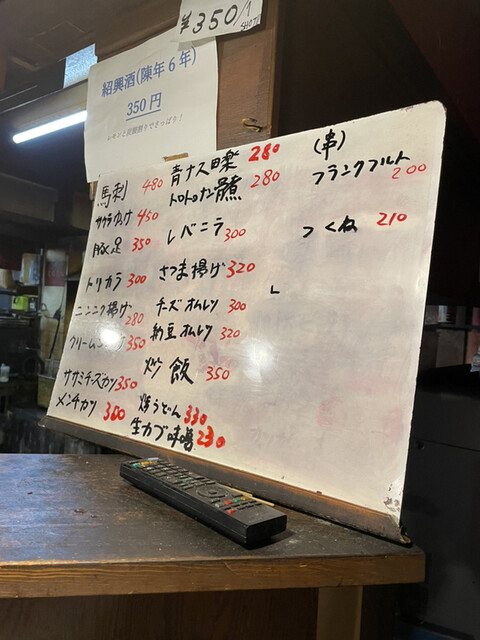 ¥350/1
紹興酒(陳年6年)
350円
レモンと炭酸割りでさっぱり!
馬刺 480
サクラユッケ 450
豚足 350
トリカラ 300
ニンニク揚げ 280
クリーム 350
ササミチーズカツ 350
メンチカツ 300
青ナス田楽 280
280
レバニラ 300
さつま揚げ 320
チーズオムレツ 300
納豆オムレツ 320
炒飯 350
焼うどん 330
生カブ味噌 230
(串)
フランクフルト 200
つくね 210